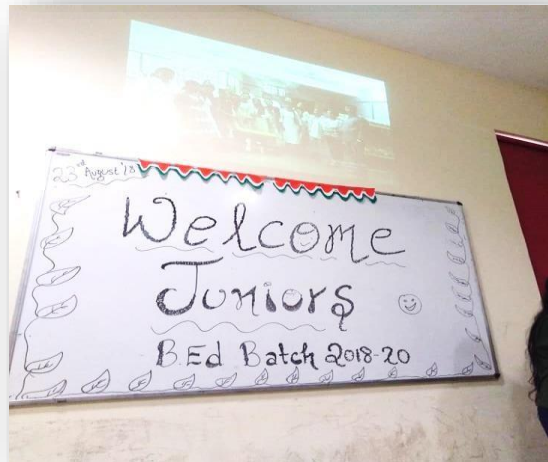 23rd August '18
Welcome
Juniors
B.Ed Batch 2018-20